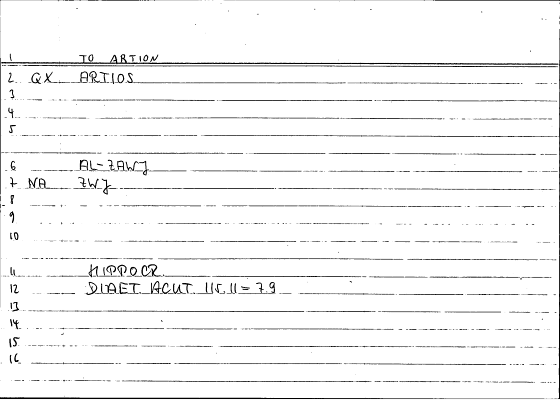 1 TO ARTION
2 QX ARTIOS
3
4
5
6 AL-ZAWJ
7 NA ZWJ
8
9
10
11 HIPPOCR.
12 DIAET. ACUT. 115.11 = 7.9
13
14
15
16